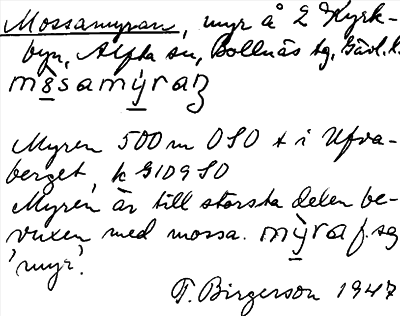 Mossamyran, myr å 2 Kyrk-
byn, Alfta sn, Bollnäs tg, Gävl. l.
Myren 500 m OSO t i Ufva-
berget, k G10950
Myren är till största delen be-
vuxen med mossa. mỳra f. sg
'myr'.
T. Birgerson 1947